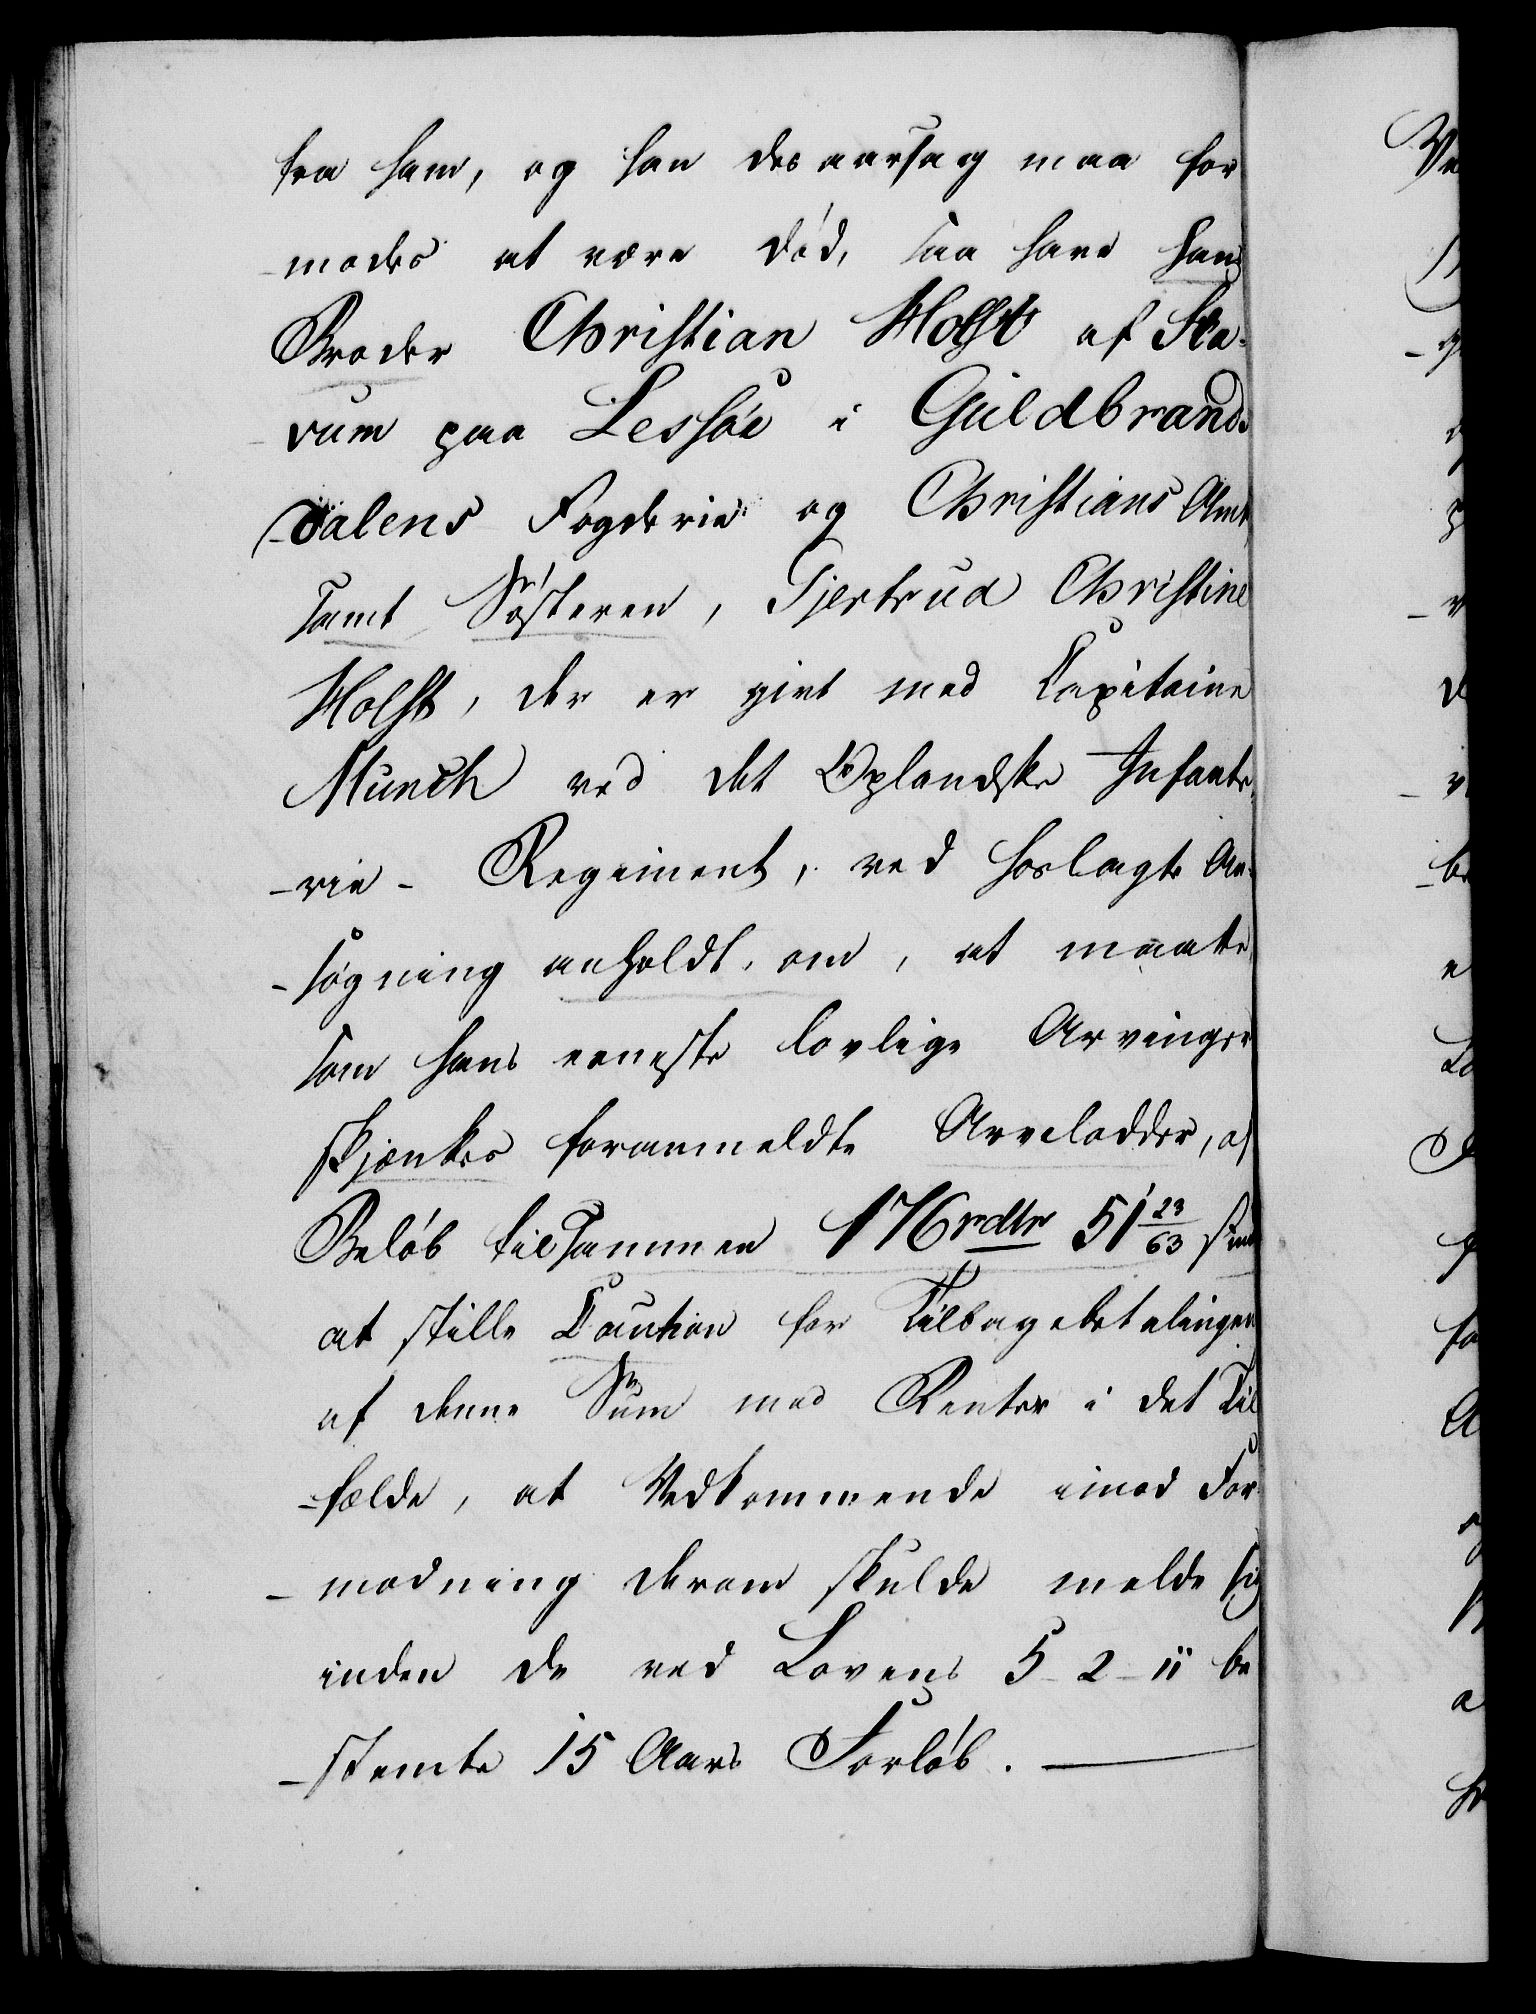 fra ham, og han des aarsag maa for
-modes at være död, saa have hans
Broder Christian Holst af Sta-
rum paa Lessöe i Guldbrands
-dalens Fogderie og Christians Amt,
samt Sösteren, Gjertrud Christine
Holst, der er givt med Capitaine
Munch ved det Oplandske Infante-
-rie- Regiment, ved hoslagte An-
-sögning anholdt om, at maatte
som hans eeneste lovlige Arvinger
skjænkes foranmeldte Arvelodder, af
Belöb tilsammen 176 rdlr 51 23/63 s
at stille Caution for Tilbagebetalingen
af denne Sum med Renter i det Til
-fælde, at Vedkommende imod For-
-modning derom skulde melde sig
inden de ved Lovens 5-2-11 be
-stemte 15 Aars Forlöb.